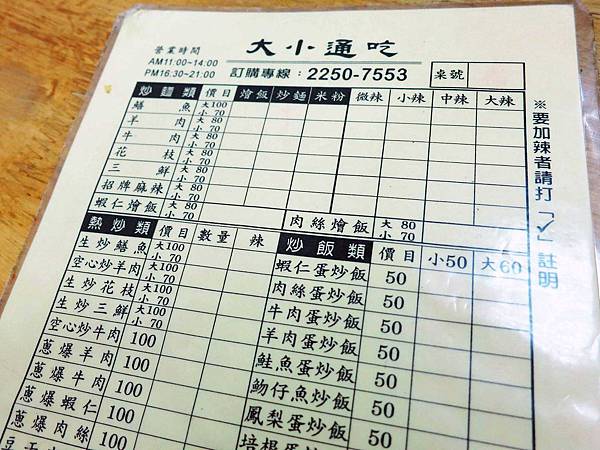 大小通吃
營業時間
AM11:00~14:00
PM16:30~21:00
訂購專線：2250-7553
桌號
炒麵類 價目 燴飯 炒麵 米粉 微辣 小辣 中辣 大辣
鱔魚 大100 小70
羊肉 大80 小70
牛肉 大80 小70
花枝 大80 小70
三鮮 大80 小70
招牌麻辣 大80 小70
蝦仁燴飯 大80 小70
肉絲燴飯 大80 小70
※要加辣者請打「✓」註明
熱炒類 價目 數量 辣
生炒鱔魚 大100 小70
空心炒羊肉 大100 小70
生炒花枝 大100 小70
生炒三鮮 大100 小70
空心炒牛肉 100
蔥爆羊肉 100
蔥爆牛肉 100
蔥爆蝦仁 100
蔥爆肉絲 100
炒飯類 價目 小50 大60
蝦仁蛋炒飯 50
肉絲蛋炒飯 50
牛肉蛋炒飯 50
羊肉蛋炒飯 50
鮭魚蛋炒飯 50
吻仔魚炒飯 50
鳳梨蛋炒飯 50
培根蛋炒飯